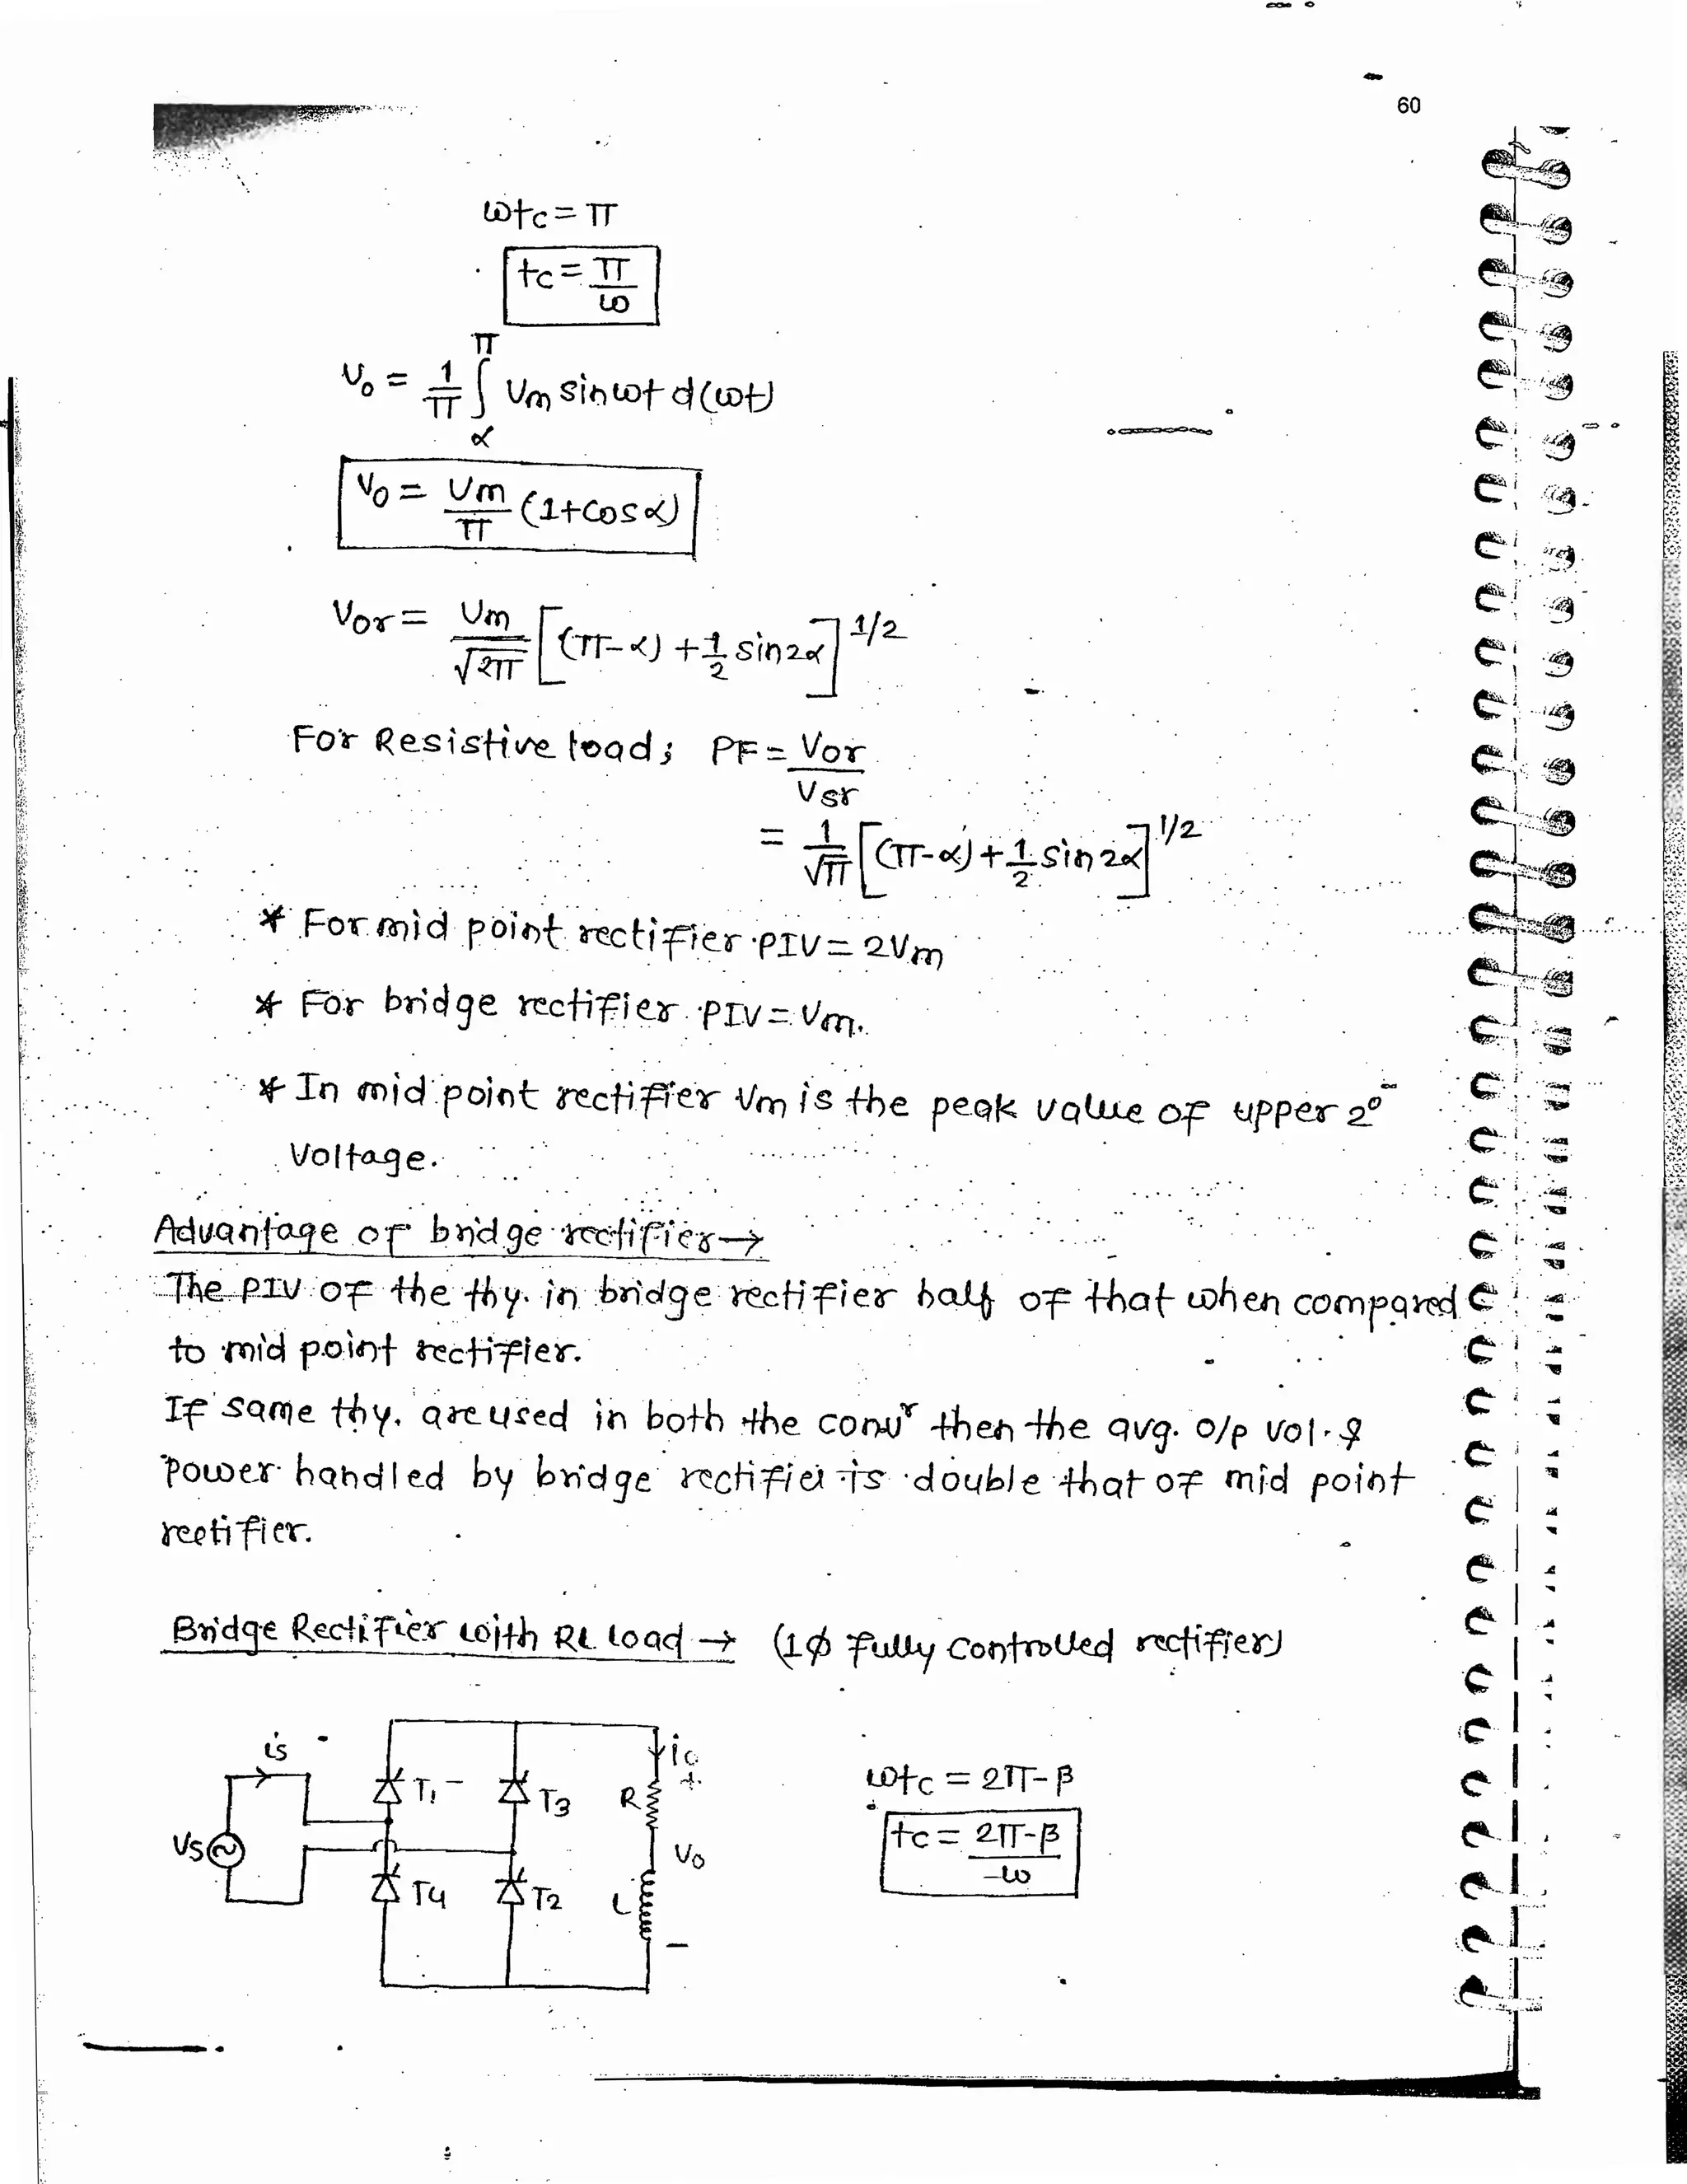 60
ωtc = π
tc = π/ω
Vo = 1/π ∫α^π Vm sinωt d(ωt)
Vo = Vm/π (1+cosα)
Vor = Vm/√2π [(π-α) + 1/2 sin2α]^1/2
For Resistive load; PF = Vor/Vsr
= 1/√π [(π-α) + 1/2 sin2α]^1/2
* For mid point rectifier PIV = 2Vm
* For bridge rectifier PIV = Vm.
* In mid point rectifier Vm is the peak value of upper 2°
Voltage.
Advantage of bridge rectifier →
The PIV of the thy. in bridge rectifier half of that when compared
to mid point rectifier.
If same thy. are used in both the conv^r then the avg. o/p vol. &
Power handled by bridge rectifier is double that of mid point
rectifier.
Bridge Rectifier with RL load → (1ϕ fully controlled rectifier)
is
T1
T3
R
io
+
Vs
Vo
T4
T2
L
-
ωtc = 2π-β
tc = 2π-β/ω